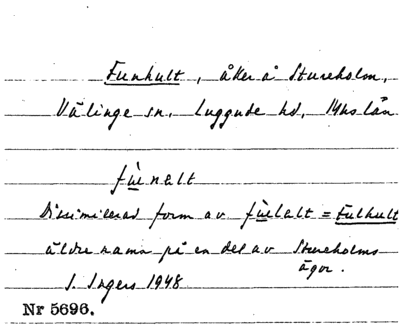 Funhult, åker å Stureholm,
Välinge sn. Luggude hd, Mhs län
fùnelt
Dissimilerad form av fùlalt = Fulhult
äldre namn på en del av Stureholms
ägor.
I. Ingers 1948
Nr 5696.